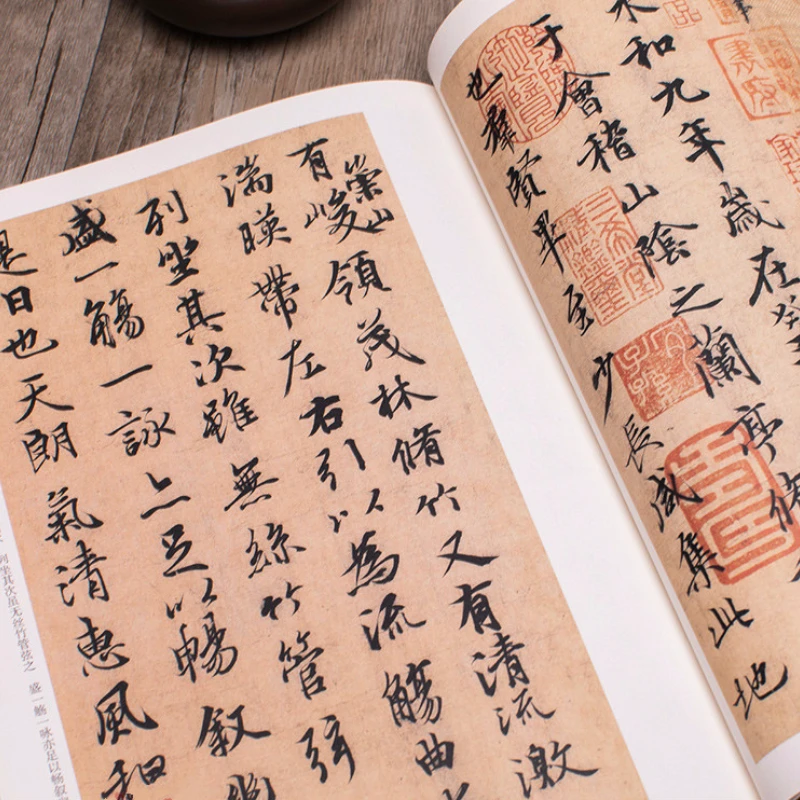 永和九年歲在癸
于會稽山陰之蘭亭脩
也羣賢畢至少長咸集此地
三希堂精鑑璽
宜子孫
有崇山峻領茂林脩竹又有清流激
湍暎帶左右引以為流觴曲
列坐其次雖無絲竹管弦
盛一觴一詠亦足以暢叙幽
是日也天朗氣清惠風和
列坐其次虽无丝竹管弦之 盛一觞一咏亦足以畅叙